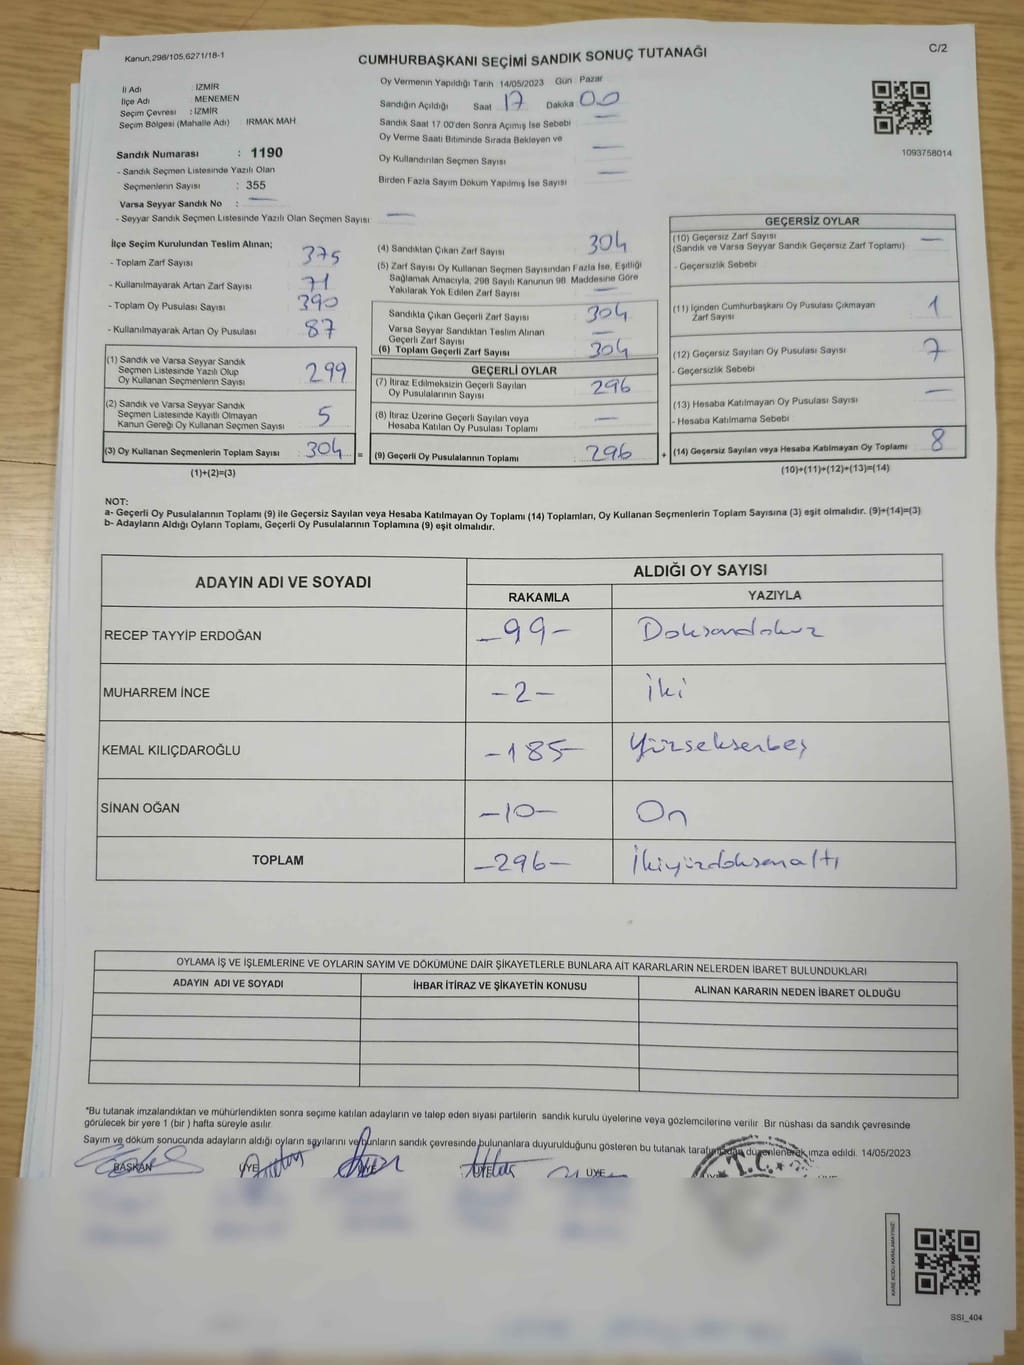 Kanun,298/105,6271/18-1
CUMHURBAŞKANI SEÇİMİ SANDIK SONUÇ TUTANAĞI
C/2
İl Adı : İZMİR
İlçe Adı : MENEMEN
Seçim Çevresi : İZMİR
Seçim Bölgesi (Mahalle Adı) IRMAK MAH
Sandık Numarası : 1190
- Sandık Seçmen Listesinde Yazılı Olan
Seçmenlerin Sayısı : 355
Varsa Seyyar Sandık No : —
- Seyyar Sandık Seçmen Listesinde Yazılı Olan Seçmen Sayısı : —
Oy Vermenin Yapıldığı Tarih 14/05/2023 Gün Pazar
Sandığın Açıldığı Saat 17 Dakika 00
Sandık Saat 17.00'den Sonra Açımış İse Sebebi —
Oy Verme Saati Bitiminde Sırada Bekleyen ve
Oy Kullandırılan Seçmen Sayısı —
Birden Fazla Sayım Döküm Yapılmış İse Sayısı —
1093758014
İlçe Seçim Kurulundan Teslim Alınan;
- Toplam Zarf Sayısı 375
- Kullanılmayarak Artan Zarf Sayısı 71
- Toplam Oy Pusulası Sayısı 390
- Kullanılmayarak Artan Oy Pusulası 87
(1) Sandık ve Varsa Seyyar Sandık
Seçmen Listesinde Yazılı Olup
Oy Kullanan Seçmenlerin Sayısı 299
(2) Sandık ve Varsa Seyyar Sandık
Seçmen Listesinde Kayıtlı Olmayan
Kanun Gereği Oy Kullanan Seçmen Sayısı 5
(3) Oy Kullanan Seçmenlerin Toplam Sayısı 304 =
(1)+(2)=(3)
(4) Sandıktan Çıkan Zarf Sayısı 304
(5) Zarf Sayısı Oy Kullanan Seçmen Sayısından Fazla İse, Eşitliği
Sağlamak Amacıyla, 298 Sayılı Kanunun 98. Maddesine Göre
Yakılarak Yok Edilen Zarf Sayısı —
Sandıkta Çıkan Geçerli Zarf Sayısı 304
Varsa Seyyar Sandıktan Teslim Alınan
Geçerli Zarf Sayısı —
(6) Toplam Geçerli Zarf Sayısı 304
GEÇERLİ OYLAR
(7) İtiraz Edilmeksizin Geçerli Sayılan
Oy Pusulalarının Sayısı 296
(8) İtiraz Üzerine Geçerli Sayılan veya
Hesaba Katılan Oy Pusulası Toplamı —
(9) Geçerli Oy Pusulalarının Toplamı 296 +
GEÇERSİZ OYLAR
(10) Geçersiz Zarf Sayısı —
(Sandık ve Varsa Seyyar Sandık Geçersiz Zarf Toplamı)
- Geçersizlik Sebebi
(11) İçinden Cumhurbaşkanı Oy Pusulası Çıkmayan
Zarf Sayısı 1
(12) Geçersiz Sayılan Oy Pusulası Sayısı 7
- Geçersizlik Sebebi
(13) Hesaba Katılmayan Oy Pusulası Sayısı —
- Hesaba Katılmama Sebebi
(14) Geçersiz Sayılan veya Hesaba Katılmayan Oy Toplamı 8
(10)+(11)+(12)+(13)=(14)
NOT:
a- Geçerli Oy Pusulalarının Toplamı (9) ile Geçersiz Sayılan veya Hesaba Katılmayan Oy Toplamı (14) Toplamları, Oy Kullanan Seçmenlerin Toplam Sayısına (3) eşit olmalıdır. (9)+(14)=(3)
b- Adayların Aldığı Oyların Toplamı, Geçerli Oy Pusulalarının Toplamına (9) eşit olmalıdır.
ADAYIN ADI VE SOYADI
ALDIĞI OY SAYISI
RAKAMLA YAZIYLA
RECEP TAYYİP ERDOĞAN -99- Doksandokuz
MUHARREM İNCE -2- İki
KEMAL KILIÇDAROĞLU -185- Yüzseksenbeş
SİNAN OĞAN -10- On
TOPLAM -296- İkiyüzdoksanaltı
OYLAMA İŞ VE İŞLEMLERİNE VE OYLARIN SAYIM VE DÖKÜMÜNE DAİR ŞİKAYETLERLE BUNLARA AİT KARARLARIN NELERDEN İBARET BULUNDUKLARI
ADAYIN ADI VE SOYADI İHBAR İTİRAZ VE ŞİKAYETİN KONUSU ALINAN KARARIN NEDEN İBARET OLDUĞU
*Bu tutanak imzalandıktan ve mühürlendikten sonra seçime katılan adayların ve talep eden siyasi partilerin sandık kurulu üyelerine veya gözlemcilerine verilir. Bir nüshası da sandık çevresinde
görülecek bir yere 1 (bir ) hafta süreyle asılır.
Sayım ve döküm sonucunda adayların aldığı oyların sayılarını ve bunların sandık çevresinde bulunanlara duyurulduğunu gösteren bu tutanak tarafımızdan düzenlenerek imza edildi. 14/05/2023
BAŞKAN ÜYE ÜYE ÜYE ÜYE
T.C.
SSI_404